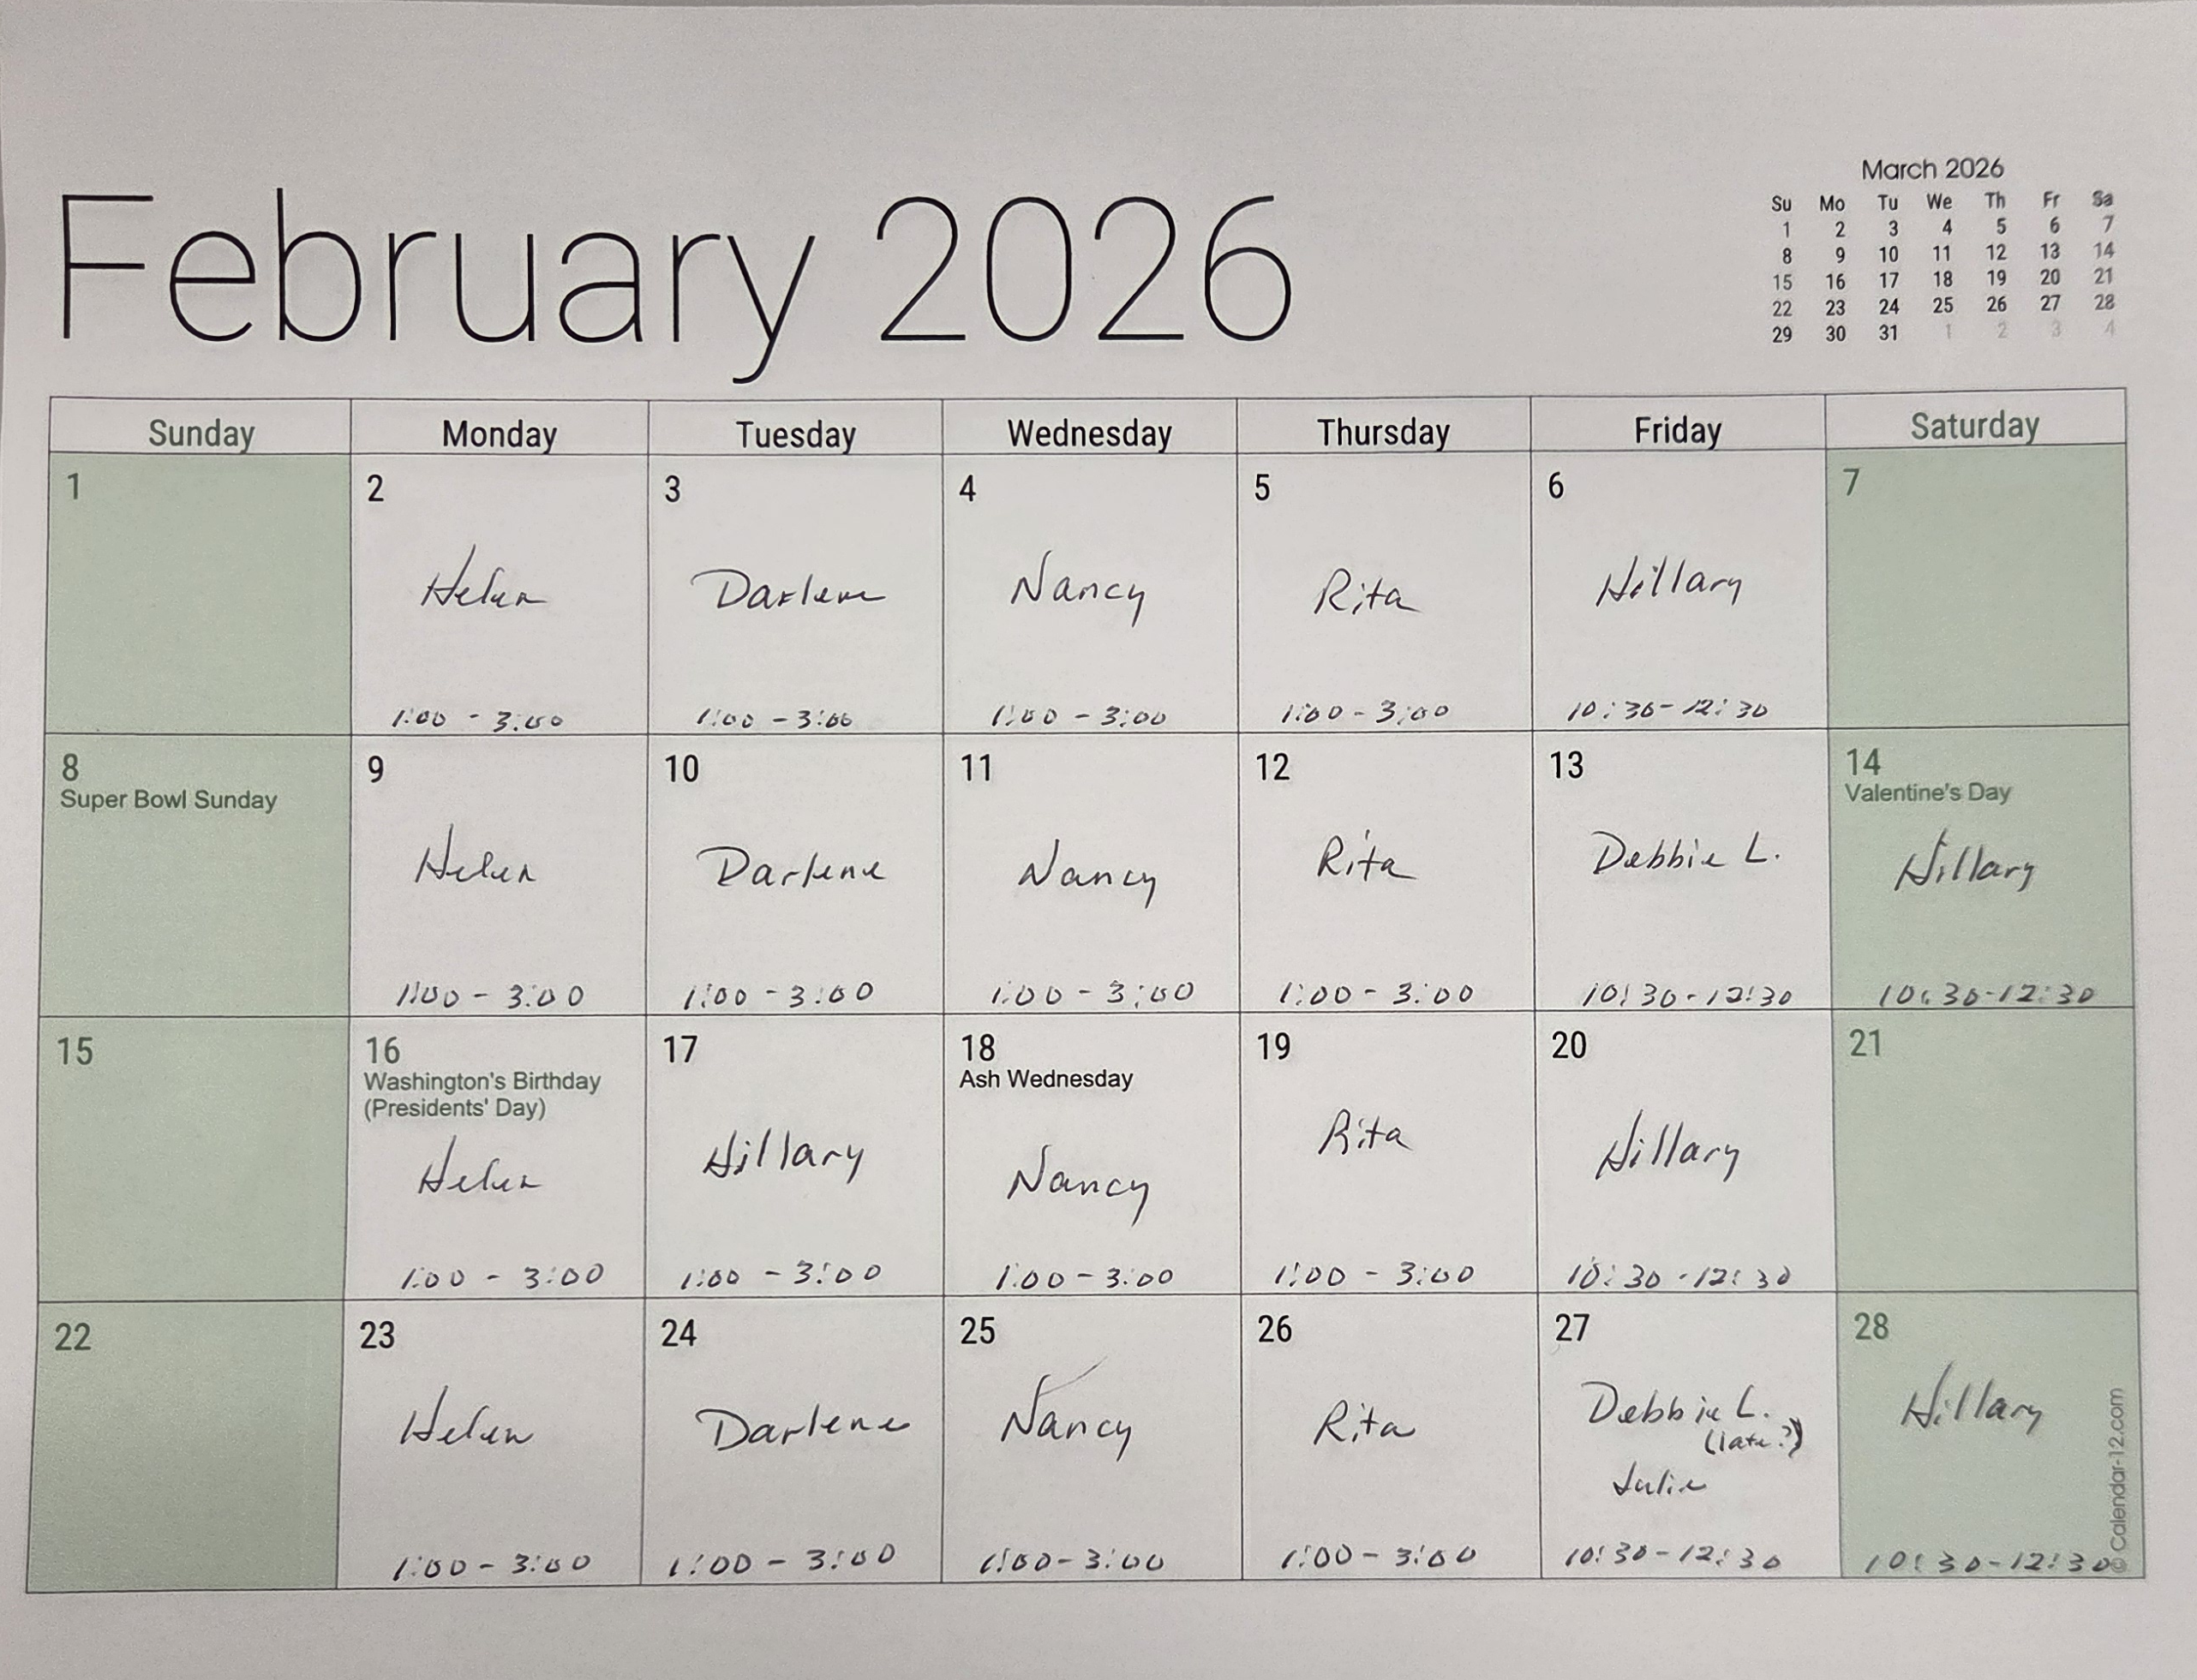 March 2026
Su Mo Tu We Th Fr Sa
1 2 3 4 5 6 7
8 9 10 11 12 13 14
15 16 17 18 19 20 21
22 23 24 25 26 27 28
29 30 31 1 2 3 4
February 2026
Sunday Monday Tuesday Wednesday Thursday Friday Saturday
1
2
Helen
1:00 - 3:00
3
Darlene
1:00 - 3:00
4
Nancy
1:00 - 3:00
5
Rita
1:00 - 3:00
6
Hillary
10:30 - 12:30
7
8
Super Bowl Sunday
9
Helen
1:00 - 3:00
10
Darlene
1:00 - 3:00
11
Nancy
1:00 - 3:00
12
Rita
1:00 - 3:00
13
Debbie L.
10:30 - 12:30
14
Valentine's Day
Hillary
10:30 - 12:30
15
16
Washington's Birthday
(Presidents' Day)
Helen
1:00 - 3:00
17
Hillary
1:00 - 3:00
18
Ash Wednesday
Nancy
1:00 - 3:00
19
Rita
1:00 - 3:00
20
Hillary
10:30 - 12:30
21
22
23
Helen
1:00 - 3:00
24
Darlene
1:00 - 3:00
25
Nancy
1:00 - 3:00
26
Rita
1:00 - 3:00
27
Debbie L.
(late?)
Julie
10:30 - 12:30
28
Hillary
10:30 - 12:30
© Calendar-12.com